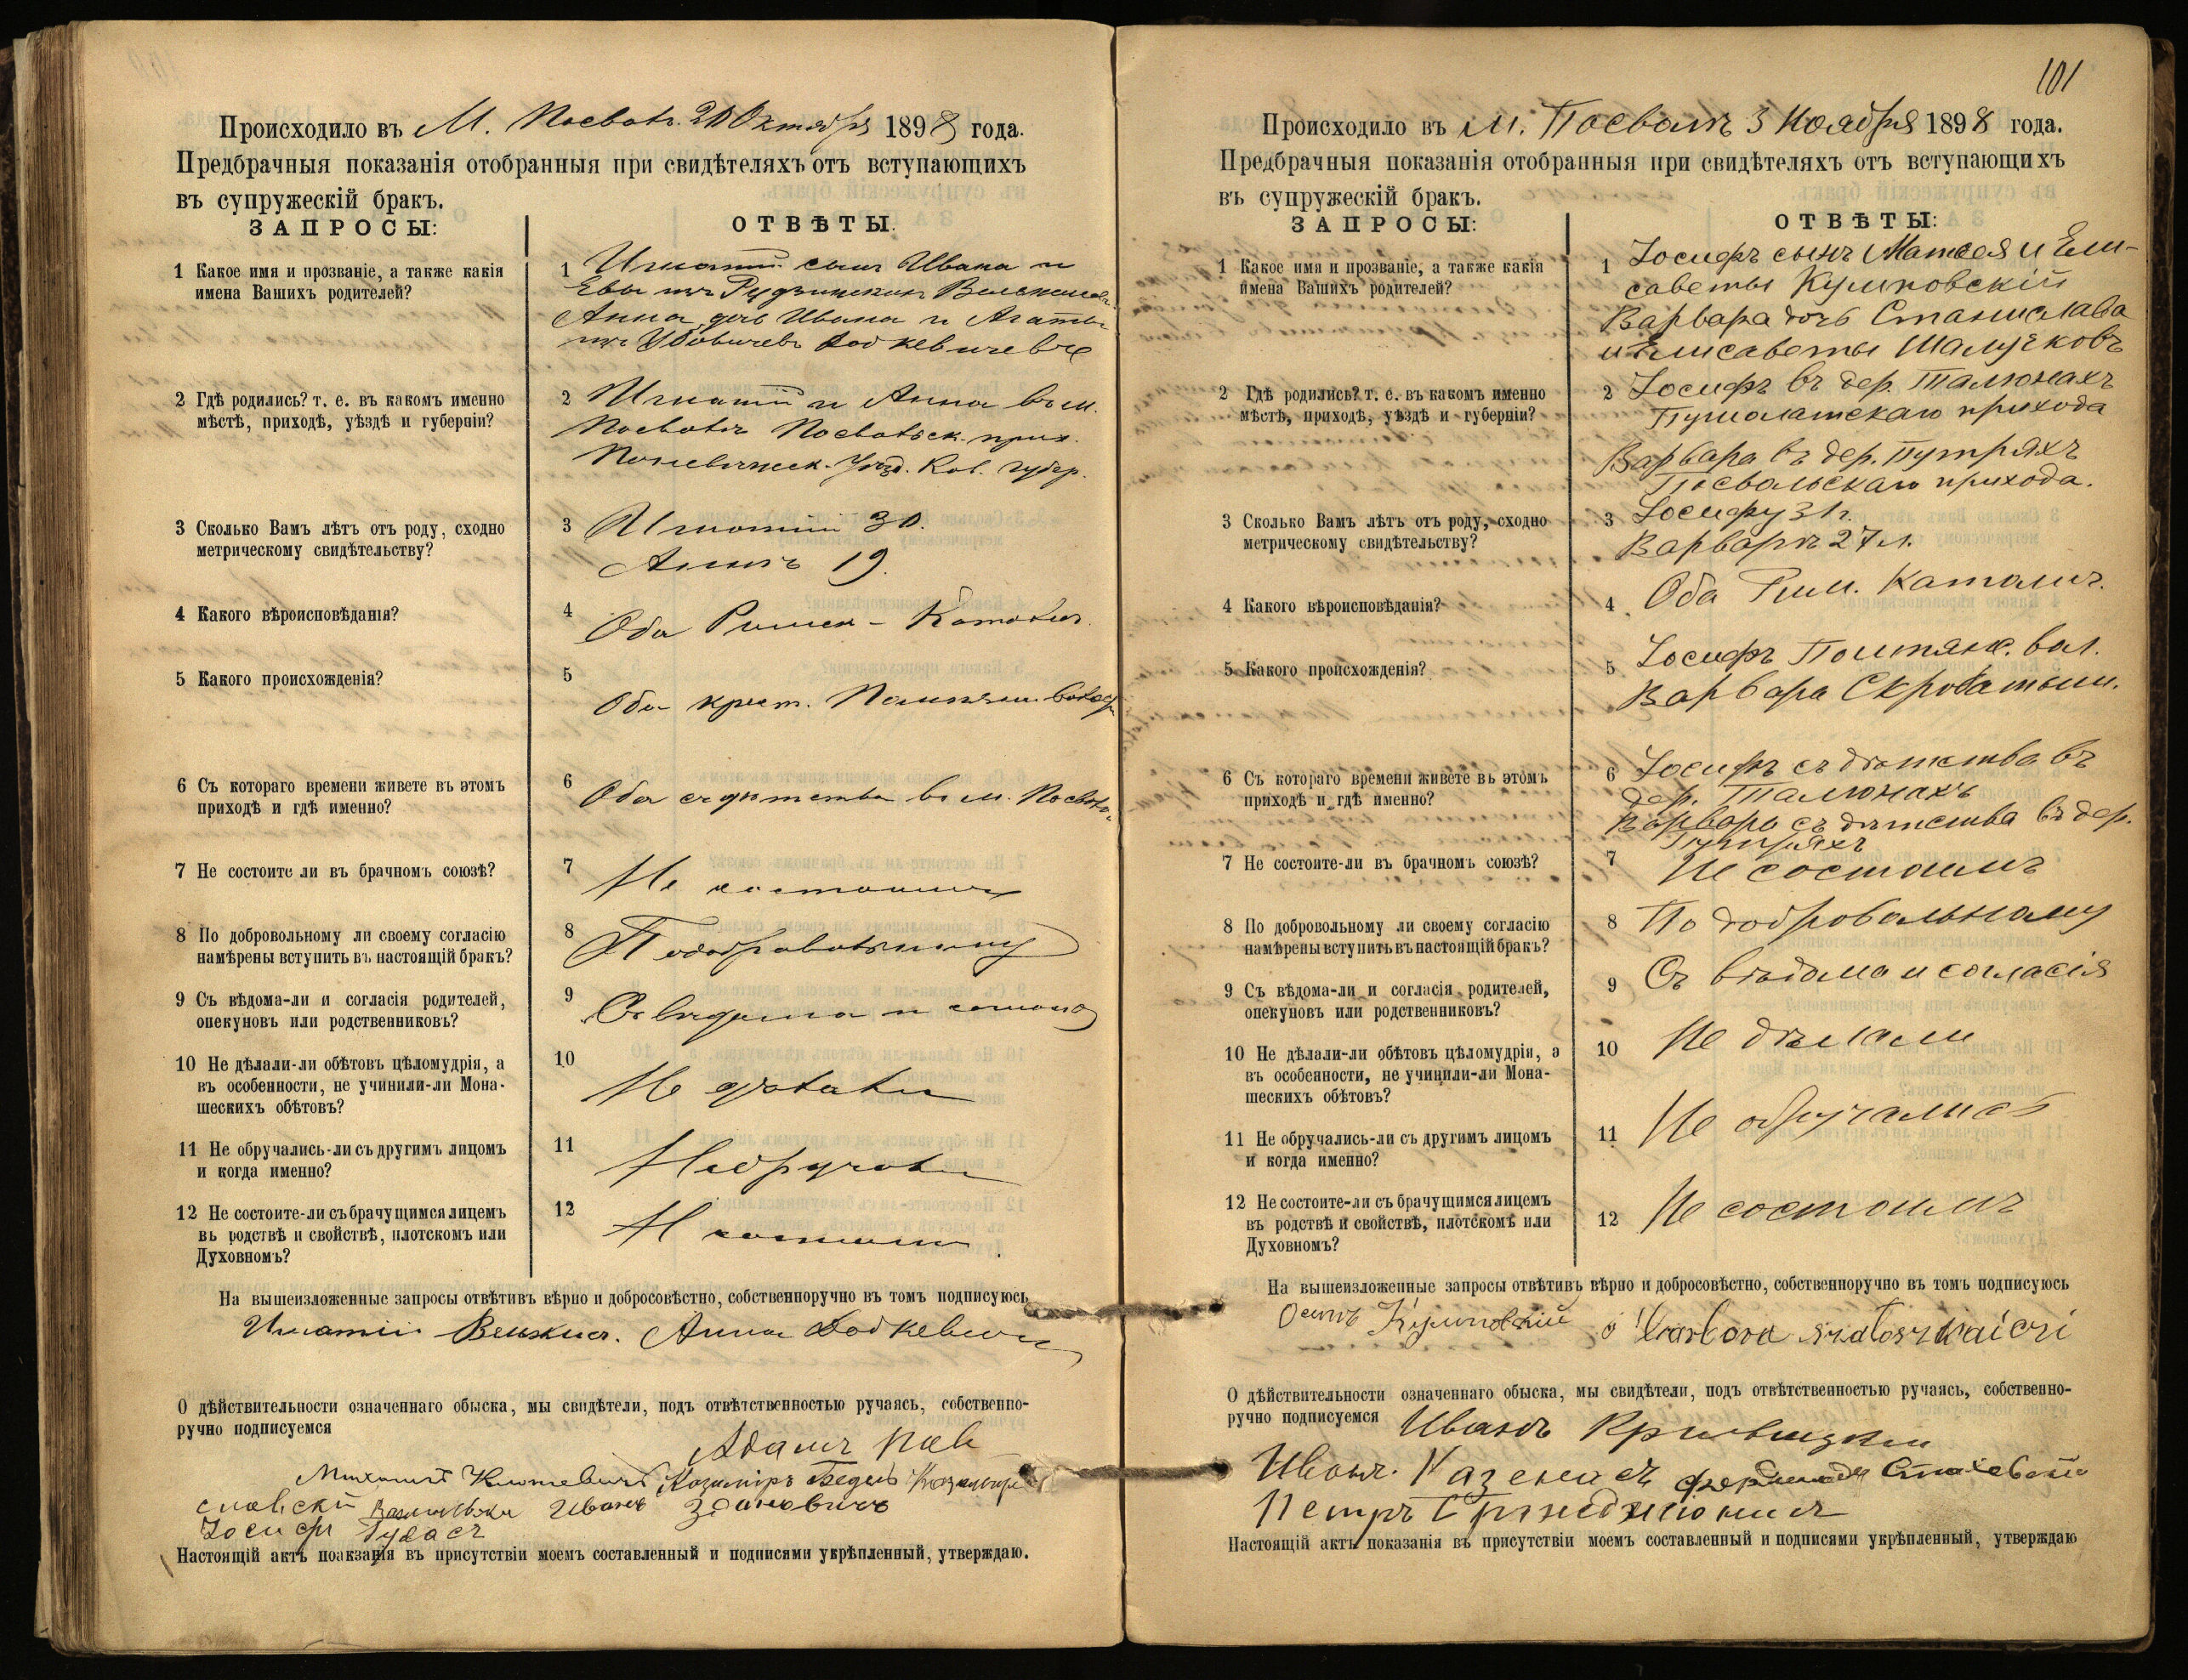 Происходило въ М. Посволь 20 Октября 1898 года.
Предбрачныя показанія отобранныя при свидѣтеляхъ отъ вступающихъ
въ супружескій бракъ.
ЗАПРОСЫ:
ОТВѢТЫ.
1 Какое имя и прозваніе, а также какія
имена Вашихъ родителей?
1 Игнатій сынъ Ивана и
Евы изъ
Анна дочь Ивана и Агаты
изъ
2 Гдѣ родились? т. е. въ какомъ именно
мѣстѣ, приходѣ, уѣздѣ и губерніи?
2 Игнатій и Анна въ м.
Посволь Посвольск. прих.
Поневѣжск. Уѣзд. Ков. губер.
3 Сколько Вамъ лѣтъ отъ роду, сходно
метрическому свидѣтельству?
3 Игнатій 30.
Аннѣ 19.
4 Какого вѣроисповѣданія?
4 Оба Римск-Католич.
5 Какого происхожденія?
5
Оба крест.
6 Съ котораго времени живете въ этомъ
приходѣ и гдѣ именно?
6 Оба съ дѣтства въ м.
7 Не состоите ли въ брачномъ союзѣ?
7 Не состоимъ
8 По добровольному ли своему согласію
намѣрены вступить въ настоящій бракъ?
8 По добровольному
9 Съ вѣдома-ли и согласія родителей,
опекуновъ или родственниковъ?
9 Съ вѣдома и
10 Не дѣлали-ли обѣтовъ цѣломудрія, а
въ особенности, не учинили-ли Мона-
шескихъ обѣтовъ?
10
Не дѣлали
11 Не обручались-ли съ другимъ лицомъ
и когда именно?
11
12 Не состоите-ли съ брачущимся лицемъ
въ родствѣ и свойствѣ, плотскомъ или
Духовномъ?
12
На вышеизложенные запросы отвѣтивъ вѣрно и добросовѣстно, собственноручно въ томъ подписуюсь
Игнатій Анна
О дѣйствительности означеннаго обыска, мы свидѣтели, подъ отвѣтственностью ручаясь, собственно-
ручно подписуемся
Адамъ
Казиміръ
Иванъ Здановичъ
Іосифъ
Настоящій актъ поакзанія въ присутствіи моемъ составленный и подписями укрѣпленный, утверждаю.
101
Происходило въ м. Посволь 3 Ноября 1898 года.
Предбрачныя показанія отобранныя при свидѣтеляхъ отъ вступающихъ
въ супружескій бракъ.
ЗАПРОСЫ:
ОТВѢТЫ:
1 Какое имя и прозваніе, а также какія
имена Вашихъ родителей?
1 Іосифъ сынъ Матвея и Ели-
саветы
Варвара дочь Станислава
и Елисаветы
2 Гдѣ родились? т. е. въ какомъ именно
мѣстѣ, приходѣ, уѣздѣ и губерніи?
2 Іосифъ въ дер. Талюнахъ
Пумпянскаго прихода
Варвара въ дер. Путряхъ
Посвольскаго прихода.
3 Сколько Вамъ лѣтъ отъ роду, сходно
метрическому свидѣтельству?
3 Іосифу 31 г.
Варварѣ 27 л.
4 Какого вѣроисповѣданія?
4 Оба Рим. Католич.
5 Какого происхожденія?
5 Іосифъ вол.
Варвара
6 Съ котораго времени живете въ этомъ
приходѣ и гдѣ именно?
6 Іосифъ съ дѣтства въ
дер. Талюнахъ
Варвара съ дѣтства въ дер.
Путряхъ
7 Не состоите-ли въ брачномъ союзѣ?
7 Не состоимъ
8 По добровольному ли своему согласію
намѣрены вступить въ настоящій бракъ?
8 По добровольному
9 Съ вѣдома-ли и согласія родителей,
опекуновъ или родственниковъ?
9 Съ вѣдома и согласія
10 Не дѣлали-ли обѣтовъ цѣломудрія, а
въ особенности, не учинили-ли Мона-
шескихъ обѣтовъ?
10 Не дѣлали
11 Не обручались-ли съ другимъ лицомъ
и когда именно?
11 Не обручались
12 Не состоите-ли съ брачущимся лицемъ
въ родствѣ и свойствѣ, плотскомъ или
Духовномъ?
12 Не состоимъ
На вышеизложенные запросы отвѣтивъ вѣрно и добросовѣстно, собственноручно въ томъ подписуюсь
Осипъ
О дѣйствительности означеннаго обыска, мы свидѣтели, подъ отвѣтственностью ручаясь, собственно-
ручно подписуемся Иванъ
Иванъ
Петръ
Настоящій актъ показанія въ присутствіи моемъ составленный и подписями укрѣпленный, утверждаю